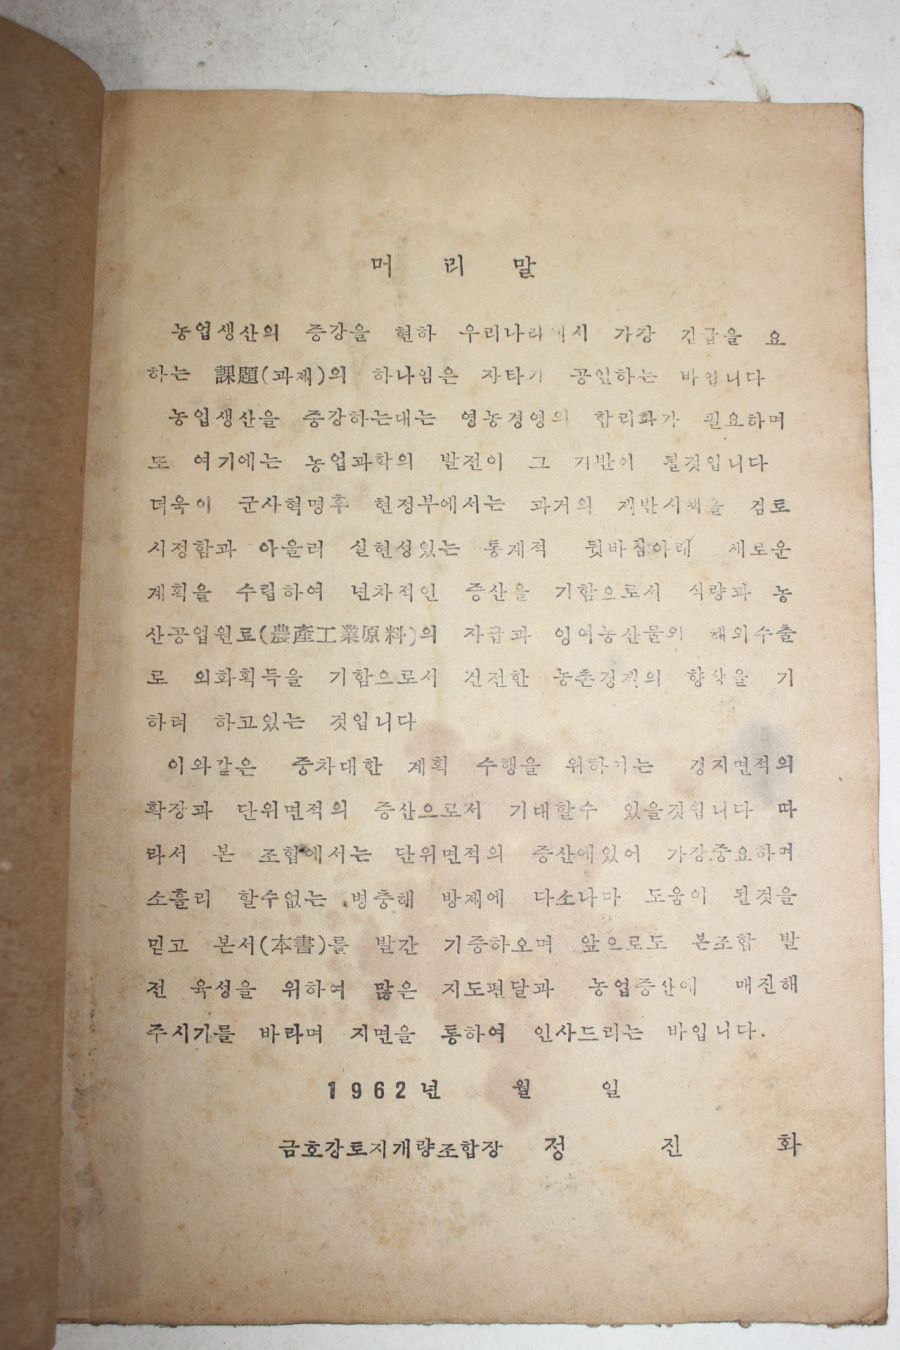 머 리 말
농업생산의 증강을 현하 우리나라에서 가강 긴급을 요
하는 課題(과제)의 하나임은 자타가 공인하는 바입니다
농업생산을 증강하는대는 영농경영의 합리화가 필요하며
또 여기에는 농업과학의 발전이 그 기반이 될것입니다
더욱이 군사혁명후 현정부에서는 과거의 제반시책을 검토
시정함과 아울러 실현성있는 통계적 뒷바침아래 새로운
계획을 수립하여 년차적인 증산을 기함으로서 식량과 농
산공업원료(農産工業原料)의 자급과 잉여농산물의 해외수출
로 외화획득을 기함으로서 건전한 농촌경제의 향상을 기
하려 하고있는 것입니다
이와같은 중차대한 계획 수행을 위하여는 경지면적의
확장과 단위면적의 증산으로서 기대할수 있을것입니다 따
라서 본 조합에서는 단위면적의 증산에있어 가강중요하며
소흘리 할수없는 병충해 방제에 다소나마 도움이 될것을
믿고 본서(本書)를 발간 기증하오며 앞으로도 본조합 발
전 육성을 위하여 많은 지도편달과 농업증산에 매진해
주시기를 바라며 지면을 통하여 인사드리는 바입니다.
1962년 월 일
금호강토지개량조합장 정 진 화